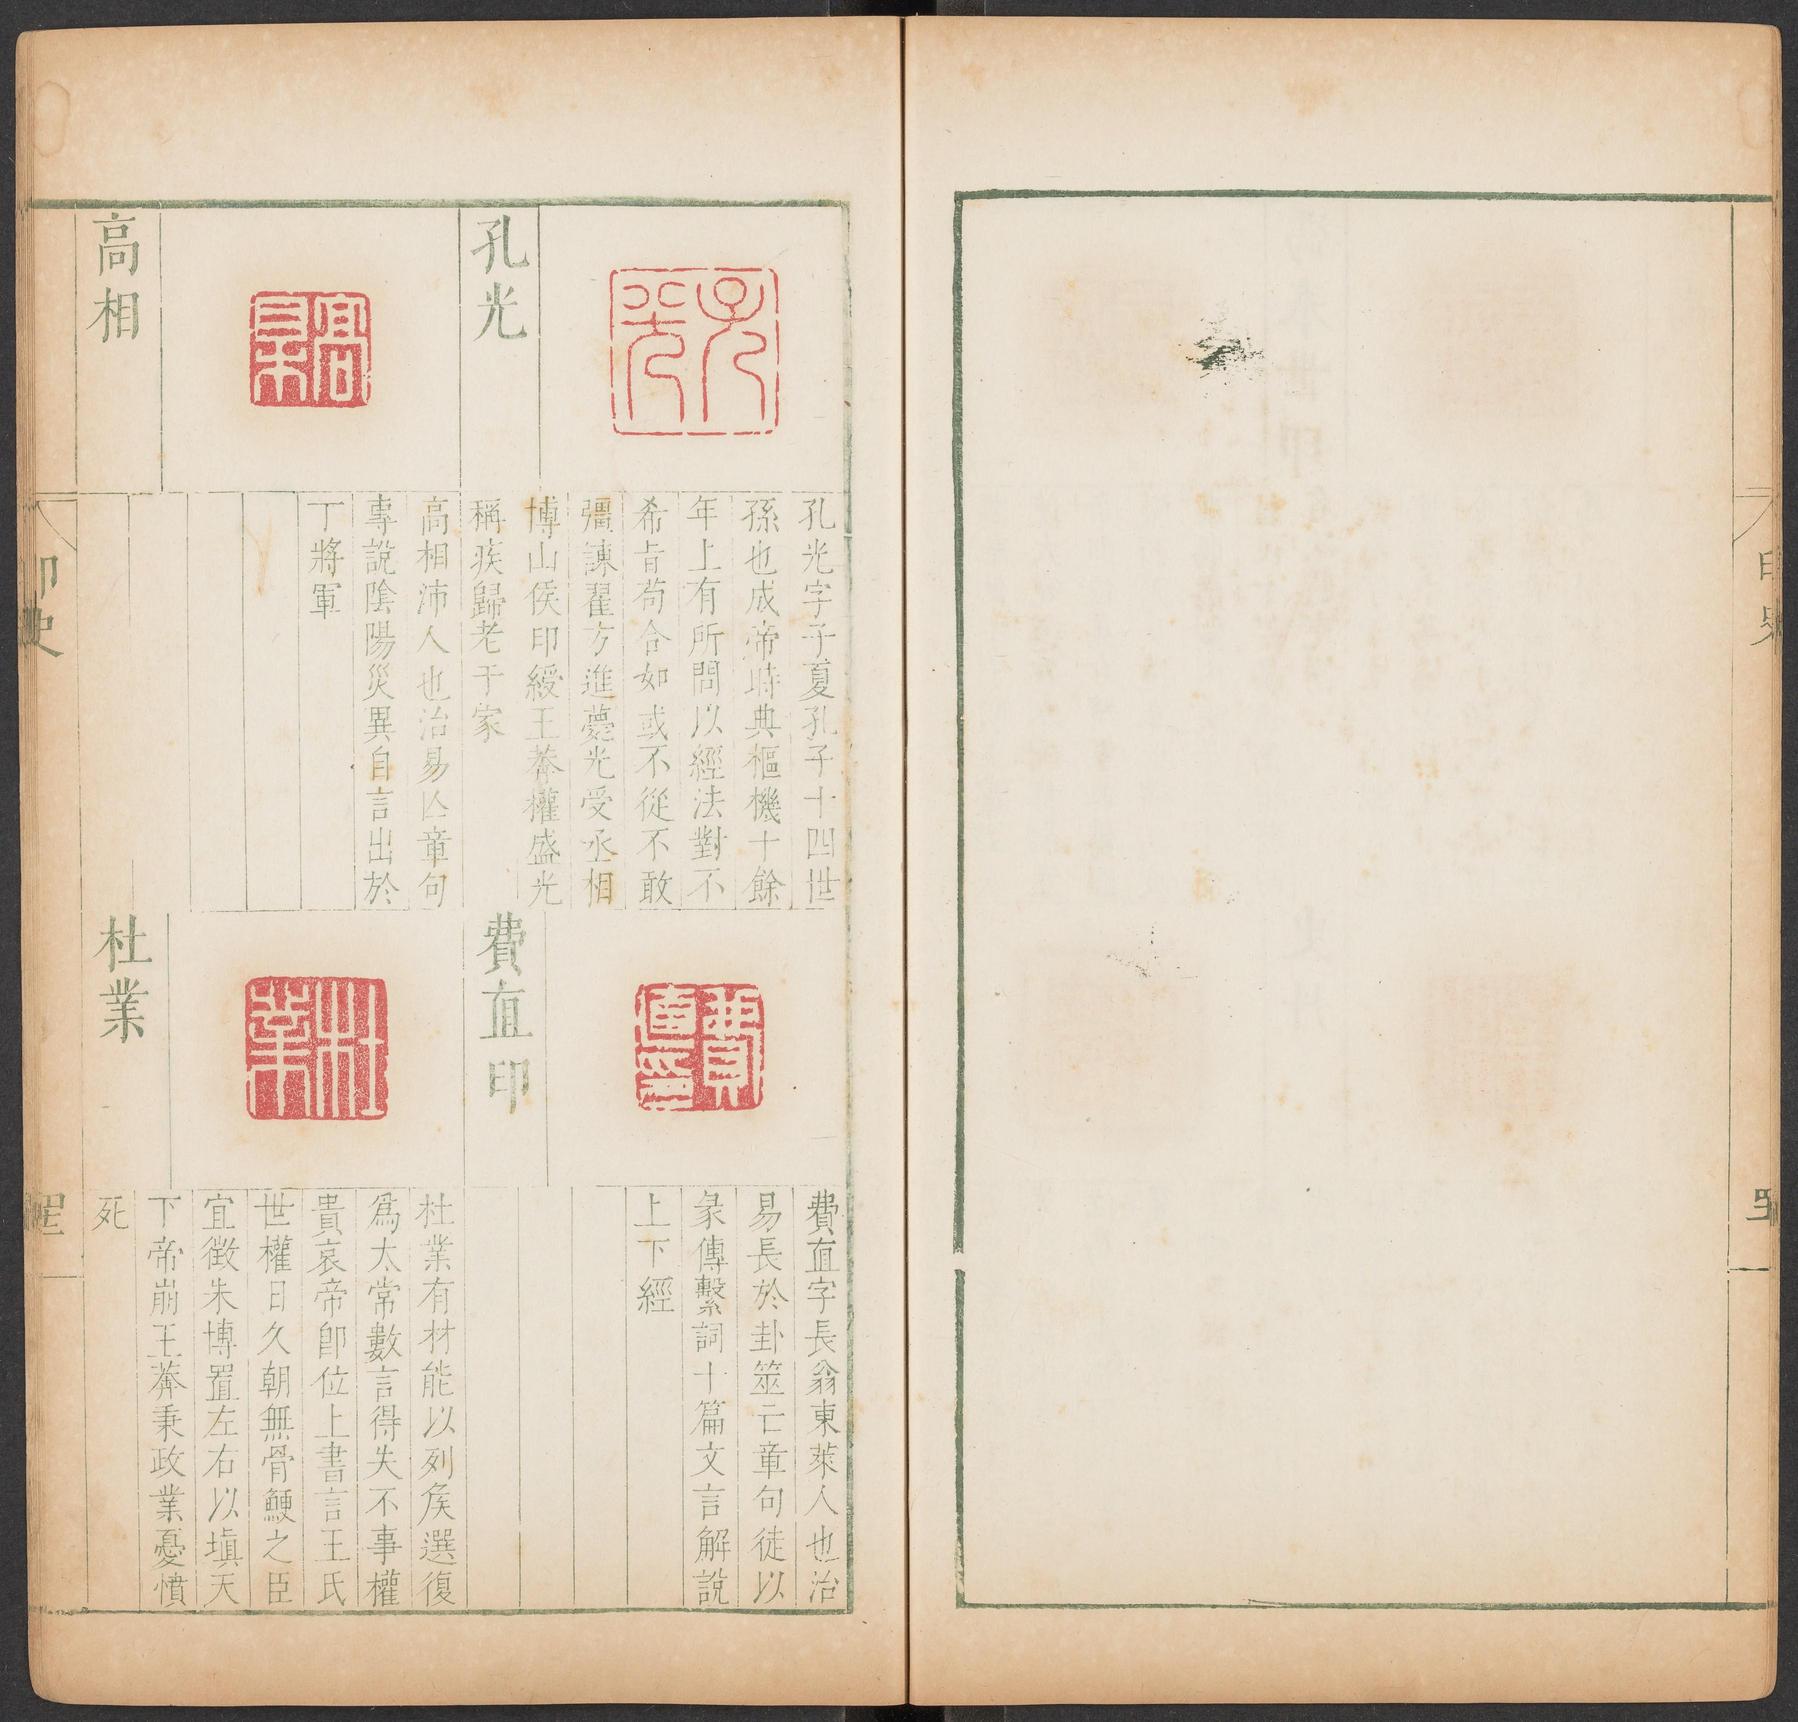 孔光
孔光
孔光字子夏孔子十四世
孫也成帝時典樞機十餘
年上有所問以經法對不
希旨苟合如或不從不敢
彊諫翟方進薨光受丞相
博山侯印綬王莽權盛光
稱疾歸老于家
高相
高相
高相沛人也治易亾章句
專說陰陽災異自言出於
丁將軍
費直印
費直印
費直字長翁東萊人也治
易長於卦筮亡章句徒以
彖傳繫詞十篇文言解說
上下經
杜業
杜業
杜業有材能以列矦選復
爲太常數言得失不事權
貴哀帝卽位上書言王氏
世權日久朝無骨鯁之臣
宜徵朱博置左右以塡天
下帝崩王莽秉政業憂憤
死
印史